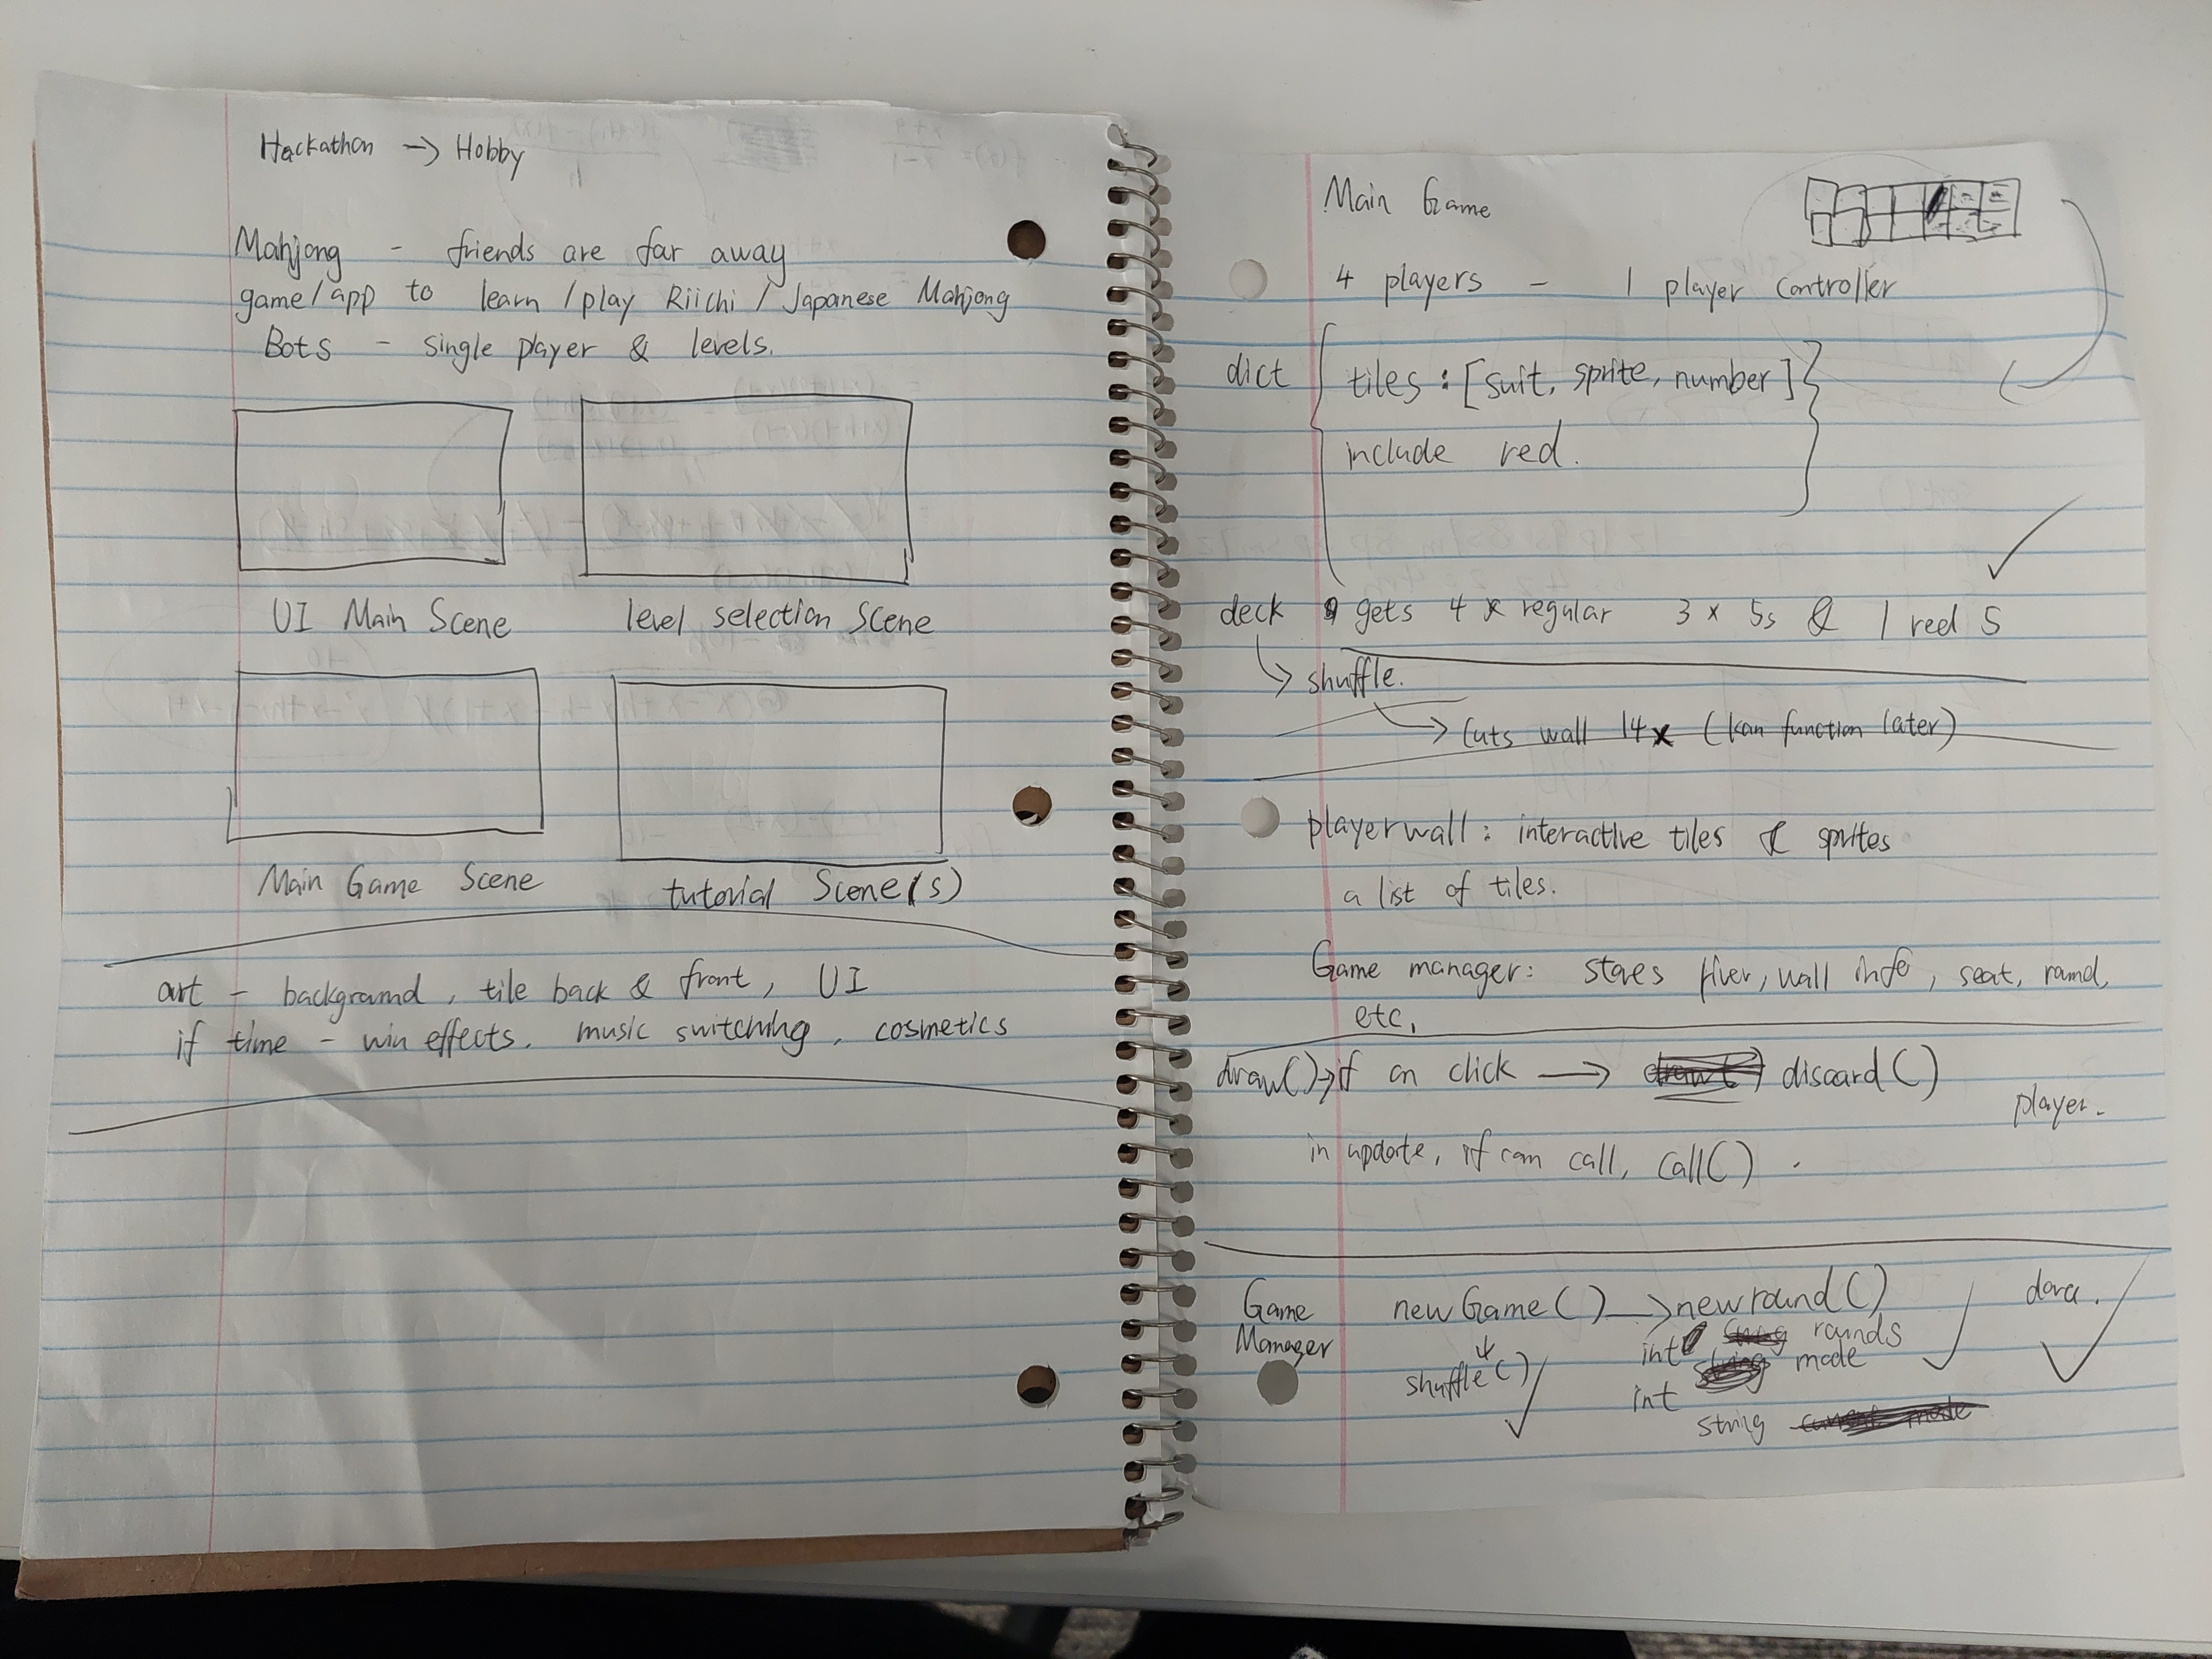 Hackathon → Hobby
Mahjong - friends are far away
game/app to learn/play Riichi/Japanese Mahjong
Bots - single player & levels.
UI Main Scene
level selection Scene
Main Game Scene
tutorial Scene(s)
art - background, tile back & front, UI
if time - win effects, music switching, cosmetics
Main Game
4 players - 1 player controller
dict { tiles : [suit, sprite, number] }
include red.
deck gets 4 x regular 3 x 5s & 1 red 5
↳ shuffle.
↳ Cuts wall 14x (kan function later)
playerwall : interactive tiles & sprites
a list of tiles.
Game manager: stores river, wall info, seat, round,
etc,
draw() → if on click → discard()
player.
in update, if can call, call() .
Game Manager
newGame() → newround()
↓
shuffle()
int rounds
int mode
string
dora.